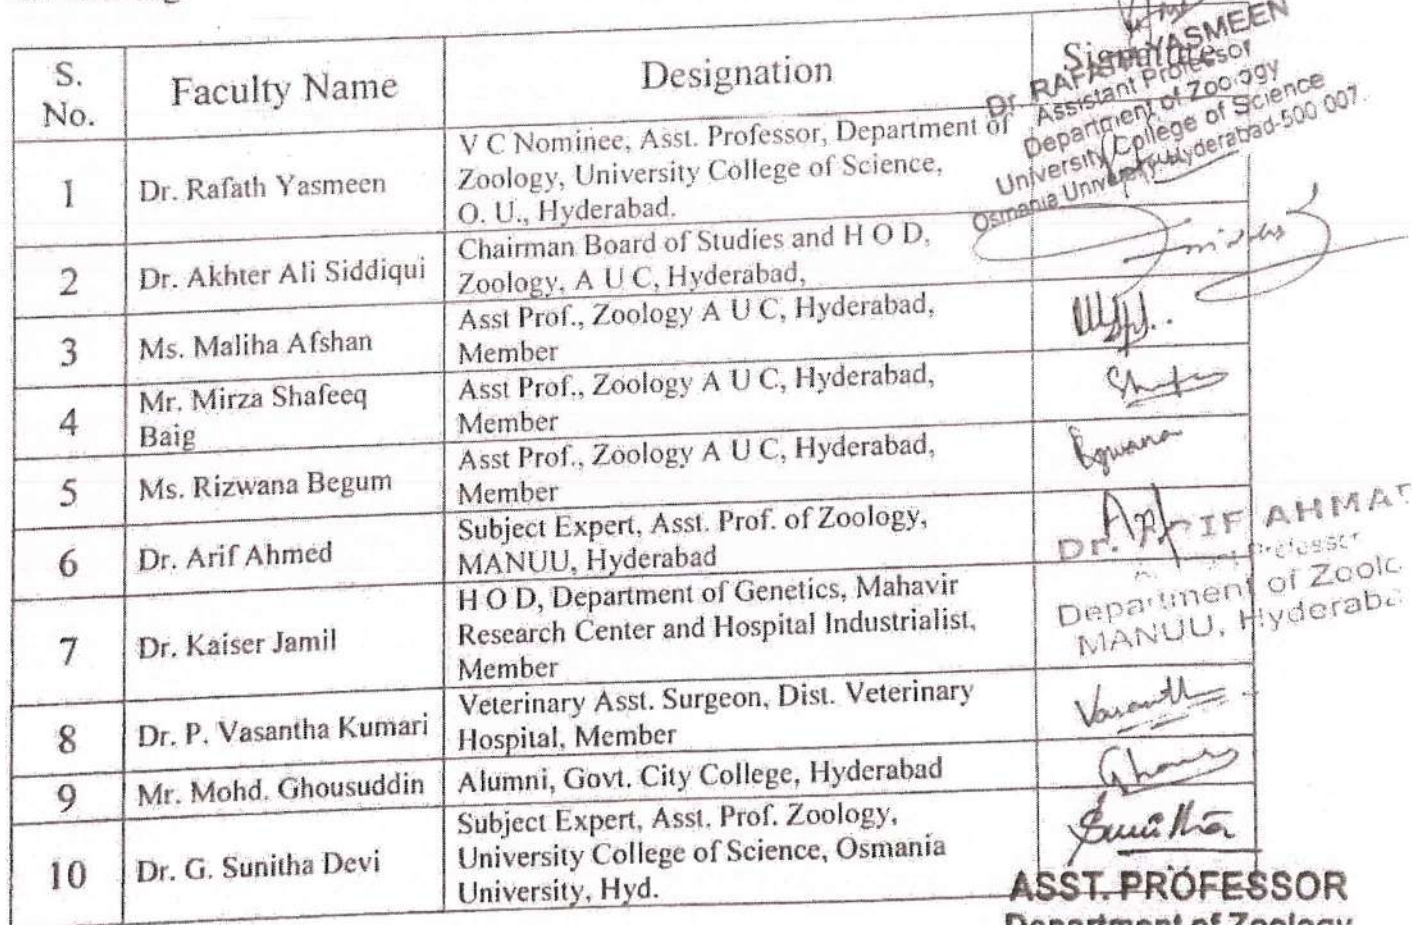 S.
No.
Faculty Name
Designation
Signature
Dr. RAFATH YASMEEN
Assistant Professor
Department of Zoology
University College of Science
Osmania University, Hyderabad-500 007.
1
Dr. Rafath Yasmeen
V C Nominee, Asst. Professor, Department of
Zoology, University College of Science,
O. U., Hyderabad.
2
Dr. Akhter Ali Siddiqui
Chairman Board of Studies and H O D,
Zoology, A U C, Hyderabad,
3
Ms. Maliha Afshan
Asst Prof., Zoology A U C, Hyderabad,
Member
4
Mr. Mirza Shafeeq
Baig
Asst Prof., Zoology A U C, Hyderabad,
Member
5
Ms. Rizwana Begum
Asst Prof., Zoology A U C, Hyderabad,
Member
6
Dr. Arif Ahmed
Subject Expert, Asst. Prof. of Zoology,
MANUU, Hyderabad
Dr. ARIF AHMAD
Professor
Department of Zoolo
MANUU, Hyderaba
7
Dr. Kaiser Jamil
H O D, Department of Genetics, Mahavir
Research Center and Hospital Industrialist,
Member
8
Dr. P. Vasantha Kumari
Veterinary Asst. Surgeon, Dist. Veterinary
Hospital, Member
9
Mr. Mohd. Ghousuddin
Alumni, Govt. City College, Hyderabad
10
Dr. G. Sunitha Devi
Subject Expert, Asst. Prof. Zoology,
University College of Science, Osmania
University, Hyd.
Sunitha
ASST. PROFESSOR
Department of Zoology